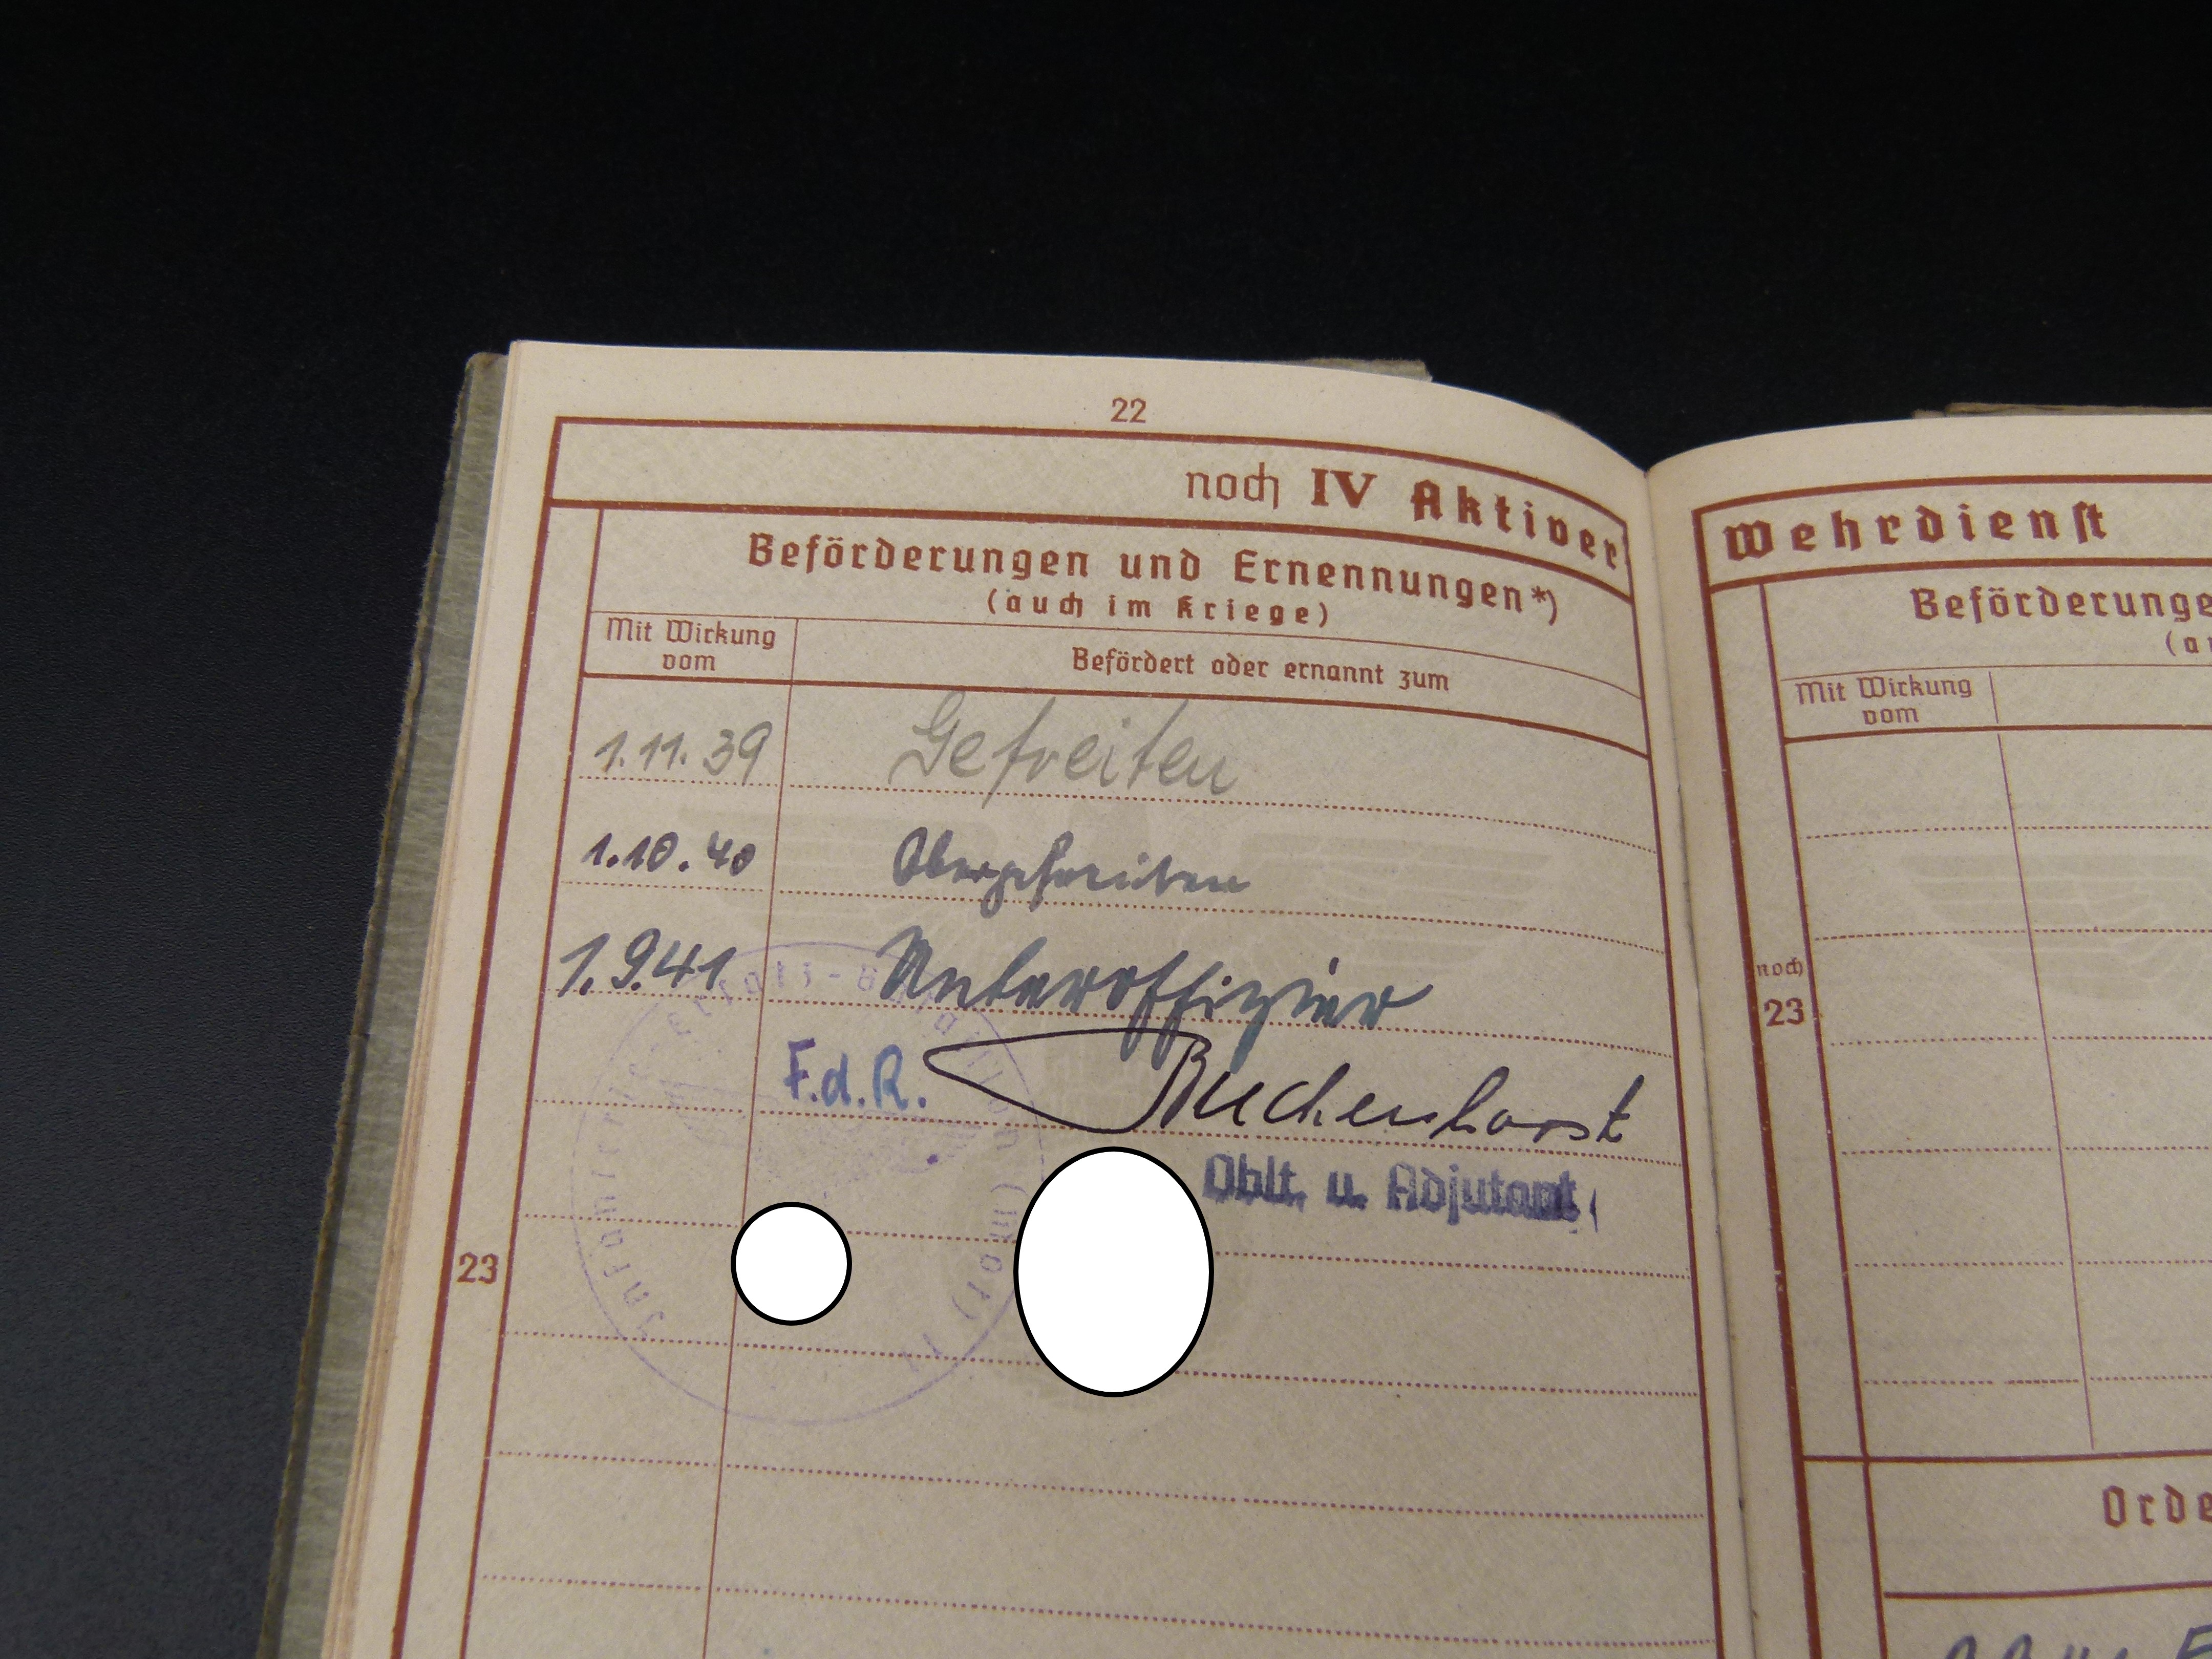 22
noch IV Aktiver
Beförderungen und Ernennungen*)
(auch im Kriege)
Mit Wirkung vom
Befördert oder ernannt zum
1.11.39 Gefreiten
1.10.40 Obergefreiten
1.9.41 Unteroffizier
F.d.R. Buchenhorst
Oblt. u. Adjutant
23
Infanterie-Ersatz-Bataillon (mot)
Wehrdienſt
Beförderunge
(au
Mit Wirkung vom
noch
23
Orde